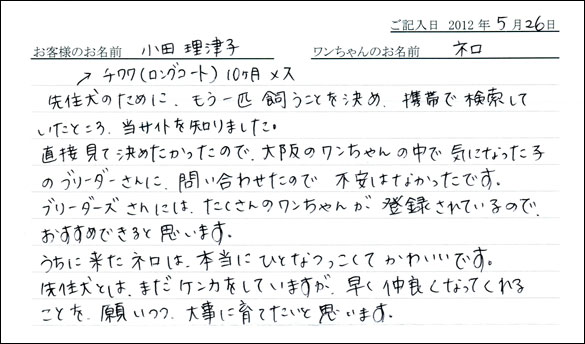 ご記入日 2012年5月26日
お客様のお名前 小田 理津子 ワンちゃんのお名前 ネロ
→チワワ(ロングコート) 10ヶ月 メス
先住犬のために、もう一匹 飼うことを決め、携帯で検索して
いたところ、当サイトを知りました。
直接見て決めたかったので、大阪のワンちゃんの中で気になった子
のブリーダーさんに、問い合わせたので 不安はなかったです。
ブリーダーズさんには、たくさんのワンちゃんが登録されているので、
おすすめできると思います。
うちに来たネロは、本当にひとなつっこくてかわいいです。
先住犬とは、まだケンカをしていますが、早く仲良くなってくれる
ことを、願いつつ、大事に育てたいと思います。